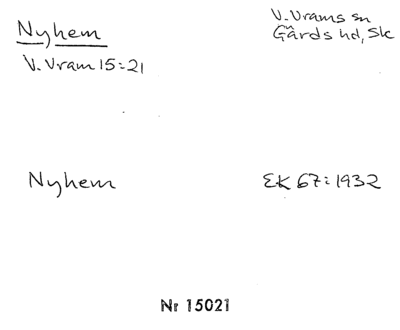 Nyhem
V. Vrams sn
Gärds hd, Sk
V. Vram 15:21
Nyhem
EK 67:1932
Nr 15021